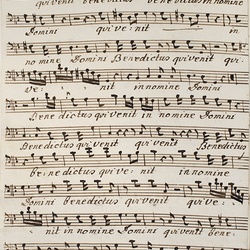 qui venit benedictus benedictus in nomine
Domini qui ve: nit in
nomine Domini Benedictus qui venit qui
ve: nit in nomine Domini
Benedictus qui venit in nomine Domini
Benedictus qui venit qui venit Benedictus
benedictus qui venit in nomine
Domini benedictus qui venit qui ve:
nit in nomine Domini qui venit bene: